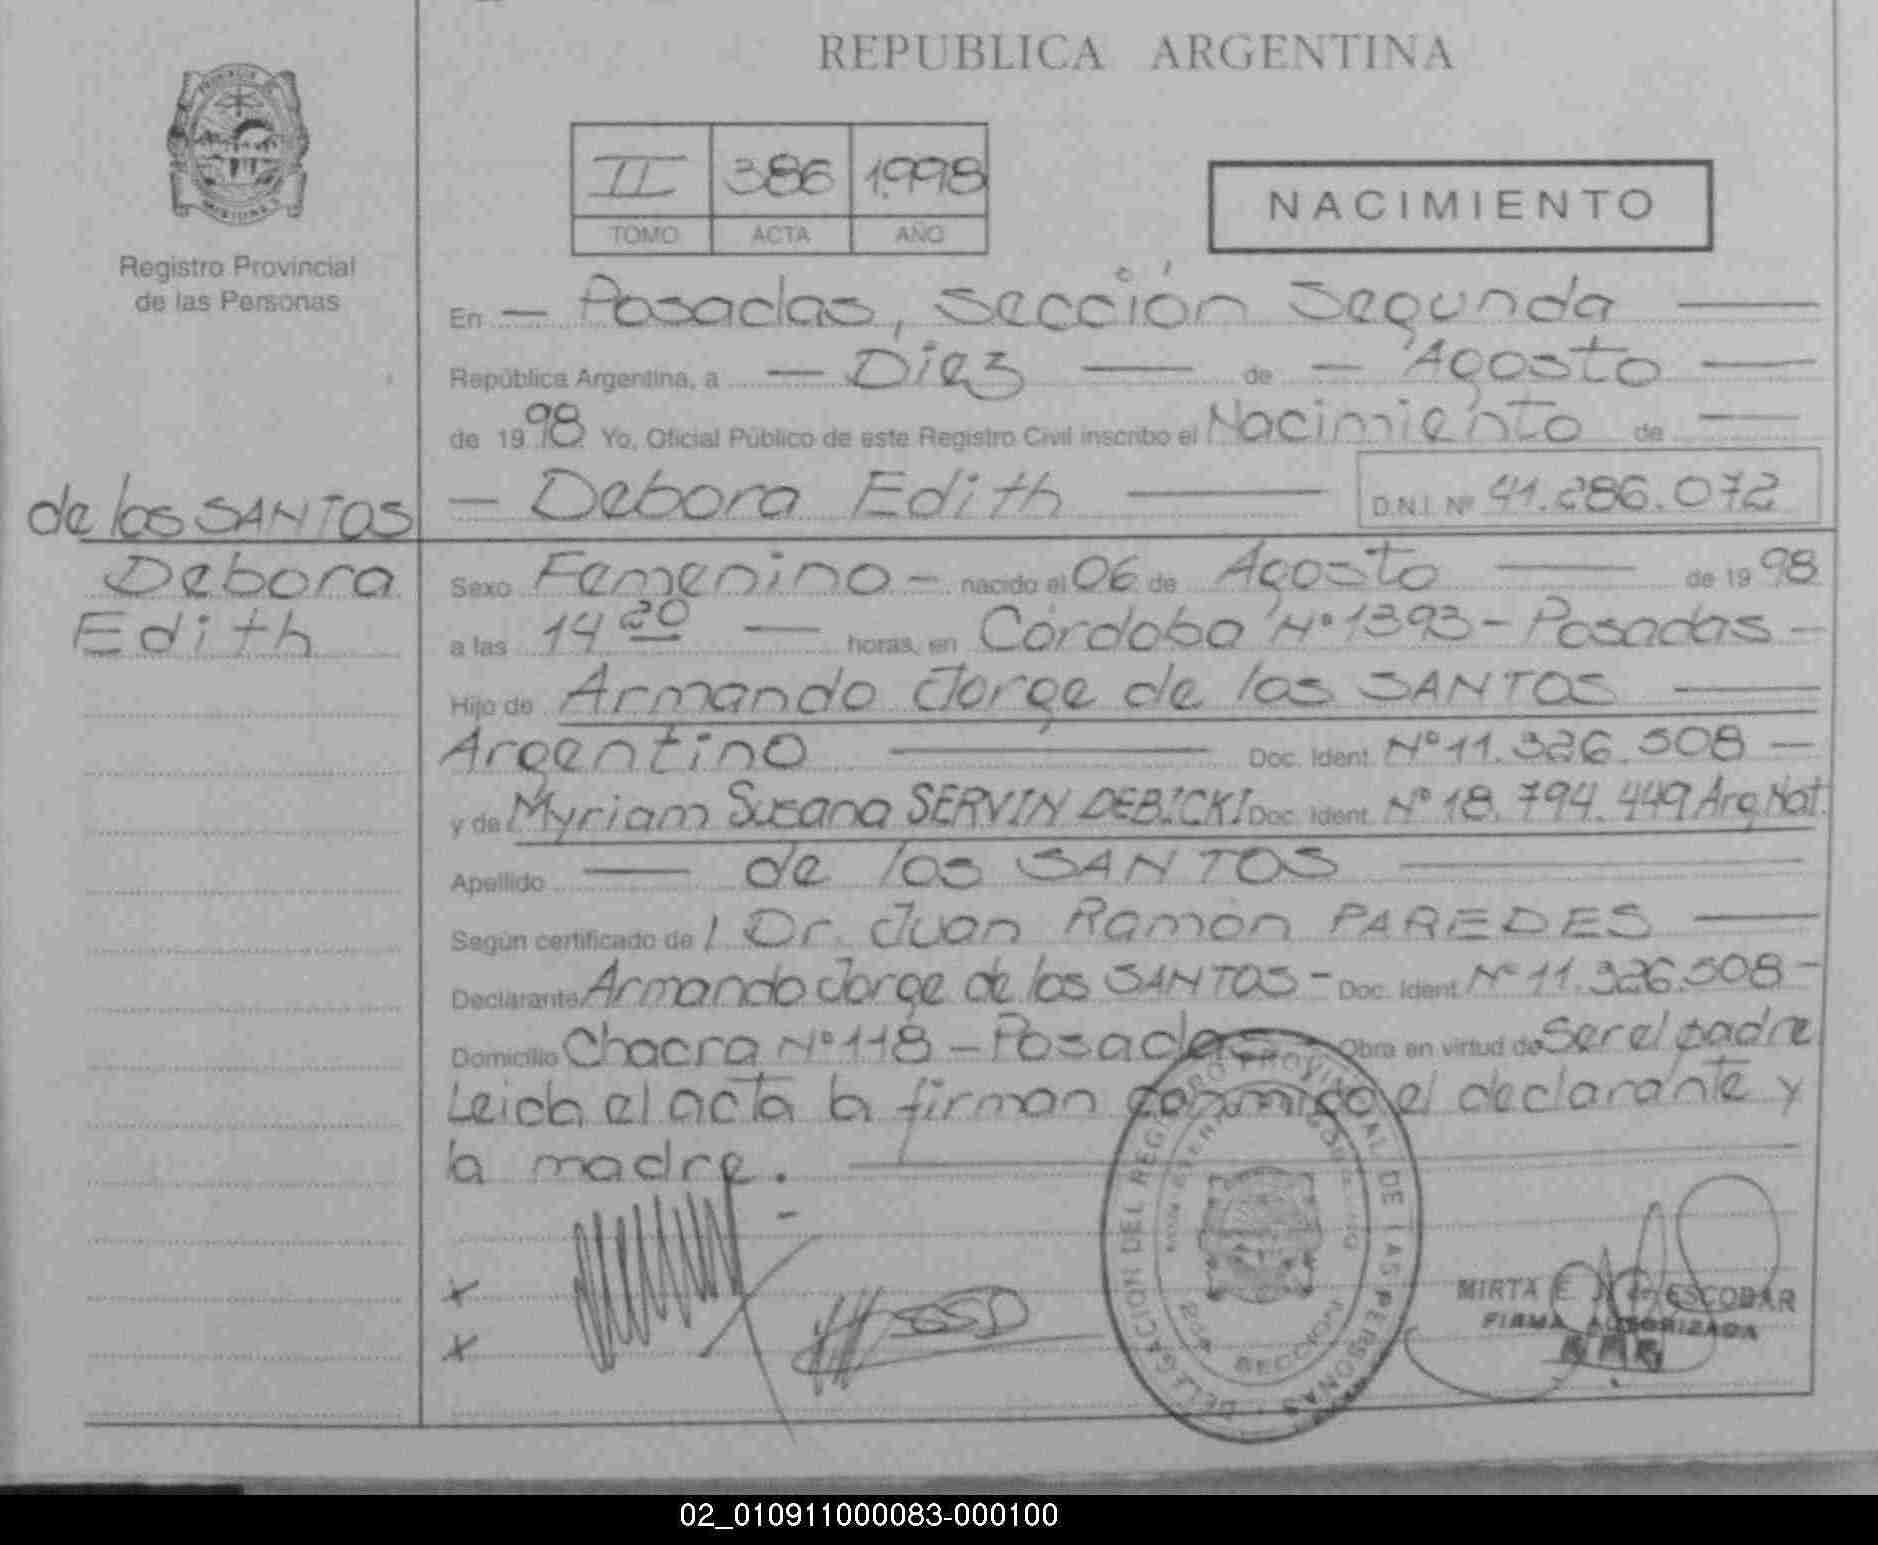 REPUBLICA ARGENTINA
II 386 1.998
TOMO ACTA AÑO
NACIMIENTO
Registro Provincial
de las Personas
En — Posadas, Sección Segunda —
República Argentina, a — Diez — de — Agosto —
de 1998 Yo, Oficial Público de este Registro Civil inscribo el Nacimiento de —
— Debora Edith — D.N.I. Nº 41.286.072
de los SANTOS
Debora
Edith
Sexo Femenino — nacido el 06 de Agosto — de 1998
a las 14 20 — horas, en Córdoba Nº 1393 - Posadas -
Hijo de Armando Jorge de los SANTOS —
Argentino — Doc. Ident. Nº 11.326.508 —
y de Myriam Susana SERVIN DEBICKI Doc. Ident. Nº 18.794.449 Arg. Nat.
Apellido — de los SANTOS —
Según certificado de / Dr. Juan Ramón PAREDES —
Declarante Armando Jorge de los SANTOS - Doc. Ident. Nº 11.326.508 -
Domicilio Chacra Nº 118 - Posadas Obra en virtud de Ser el padre
Leida el acta la firman conmigo el declarante y
la madre. —
DELEGACION DEL REGISTRO PROVINCIAL DE LAS PERSONAS
2da SECCION
MIRTA E. ESCOBAR
FIRMA AUTORIZADA
02_010911000083-000100